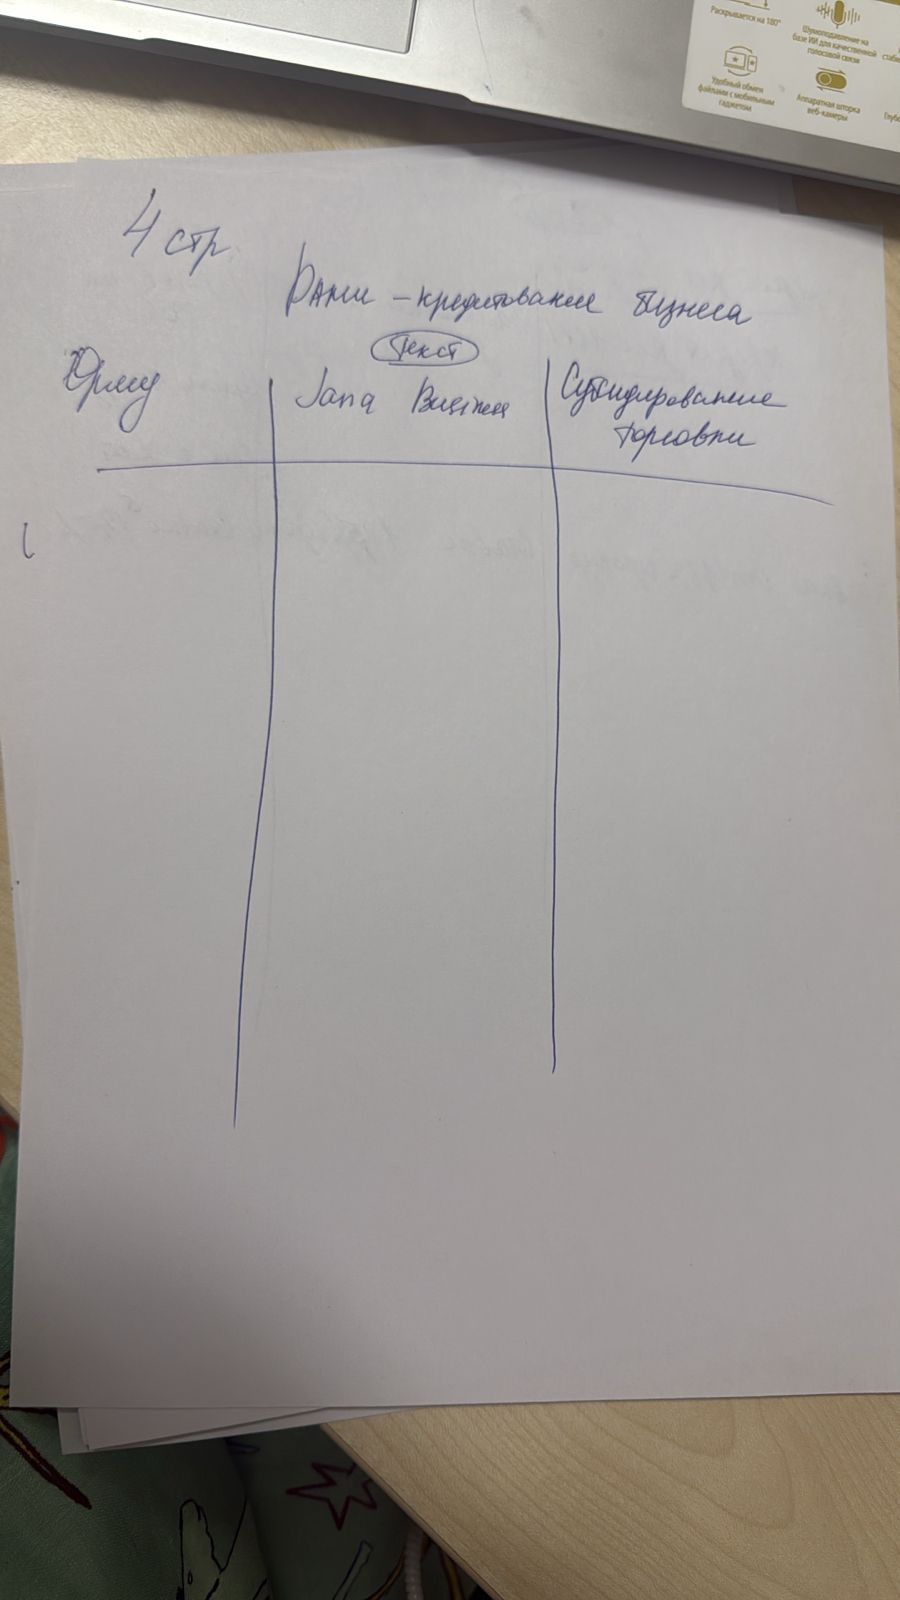 Раскрывается на 180°
Шумоподавление на
базе ИИ для качественной
голосовой связи
Удобный обмен
файлами с мобильным
гаджетом
Аппаратная шторка
веб-камеры
4 стр
Даму – кредитование бизнеса
текст
Өрлеу
Jana Business
Субсидирование
торговли